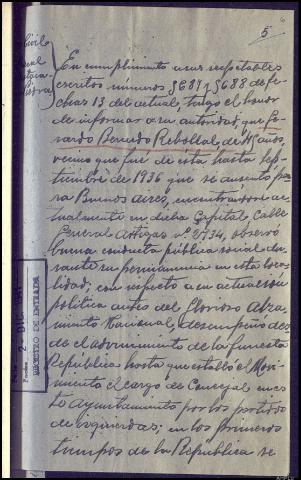 5
Civil
En cumplimiento a sus respetables
escritos números 5687 y 5688 de fe-
chas 13 del actual, tengo el honor
de informar a su autoridad, que
Bernedo Rebolldal, de años,
vecino que fué de esta hasta sep-
tiembre de 1936 que se ausentó pa
ra Buenos Aires, encontrándose ac-
tualmente en dicha Capital, Calle
General Artigas nº 2734, observó
buena conducta pública social du-
rante su permanencia en esta loca-
lidad; con respecto a su actuación
política antes del Glorioso Alza-
miento Nacional, desempeñó des-
de el advenimiento de la funesta
República hasta que estalló el Movi-
miento el cargo de Concejal en es-
te Ayuntamiento por los partidos
de izquierdas; en los primeros
tiempos de la República se
2 - DIC. 1941
REGISTRO DE ENTRADA